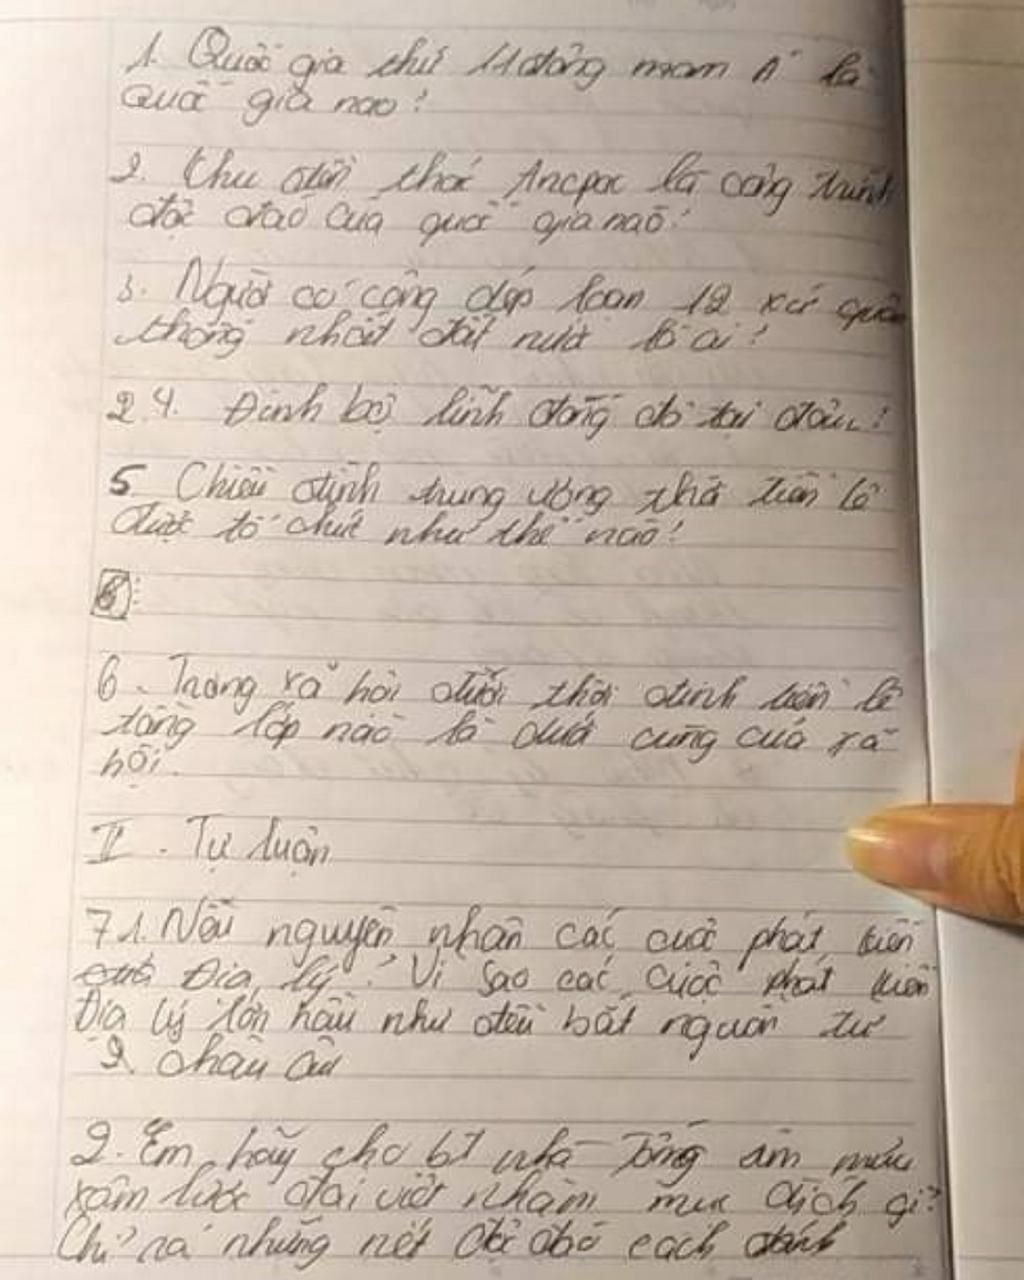 1. Quốc gia thứ Hoàng mam Á là
Quốc gia nào?
2. Chu đền thác Ăncpoc là công trình
độc đáo của quốc gia nào?
3. Người có công dẹp loạn 12 xứ quân
thống nhất đất nước là ai?
2 4. Đinh bộ lĩnh đóng đô tại đâu?
5 Chiều đình trung ương thời tiền lê
được tổ chức như thế nào?
6. Trong xã hội dưới thời đinh tiền lê
tầng lớp nào là dưới cùng của xã
hội.
II. Tự luận
7 1. Nêu nguyên nhân các cuộc phát kiến
Địa lý? Vì sao các cuộc phát kiến
Địa lý lớn hầu như đều bắt nguồn từ
châu Âu
2. Em hãy cho bt nhà Tống âm mưu
xâm lược đại việt nhằm mục đích gì?
Chỉ ra những nét độc đáo cách đánh